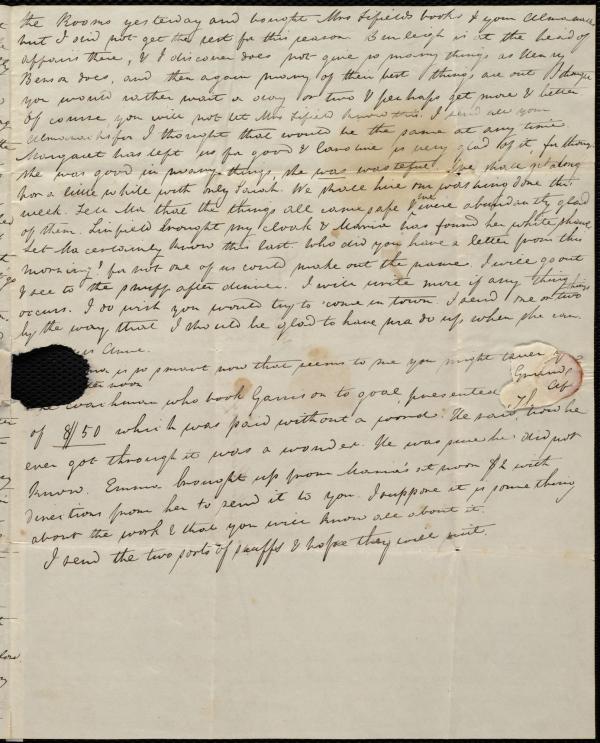 the Rooms yesterday and bought Mrs Fifields books & your Almanacs
but I did not get the rest for this reason Burleigh is at the head of
affairs there, & I discover does not give so many things as Henry
Benson does, and then again many of their best things are out I dare say
you would rather wait a day or two & perhaps get more & better
Of course you will not let Mrs Fifield know this. I send all your
Almanacks for I thought that would be the same at any time
Margaret has left us for good & Caroline is very glad of it, for though
she was good in many things, she was wasteful. We shall get along
for a little while with only Sarah. We shall hire our washing done this
week. Tell Ma that the things all came safe & we were abundantly glad
of them. Linfield brought my cloak & Maria has found her white shawl
Let Ma certainly know this last. Who did you have a letter from this
morning? for not one of us could make out the name. I will go out
& see to the snuff after dinner. I will write more if any thing
occurs. I do wish you would try to come in town. I send one or two things
by the way, that I should be glad to have Ma do up, when she can.
Anne.
is so smart now that seems to me you might
noon
coachman who took Garrison to goal, presented
of $7 50 which was paid without a word. He said how he
ever got through it was a wonder. He was sure he did not
know. Emma brought up from Maria's at noon $2 with
directions from her to send it to you. I suppose it is something
about the work & that you will know all about it.
I send the two sorts of snuffs & hope they will suit.